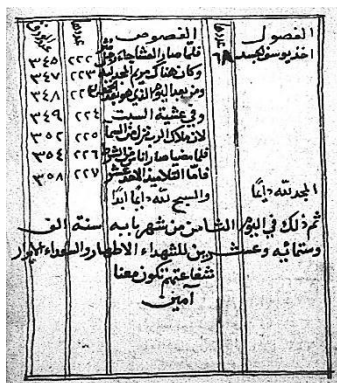 الفصول عددها الفصوص عددها
اخذ يوسف لجسد ٦٨ فلما صار المشا جا رجل ٢٢٢ ٣٤٥
وكان هناك مريم المجدلية ٢٢٣ ٣٤٧
ومن بعد اليوم الذي هو بعد ٣٤٨
وفي عشية السبت ٢٢٤ ٣٤٩
لان ملاك الرب نزل من السما ٢٢٥ ٣٥٢
فلما مضيا صارا ٢٢٦ ٣٥٤
فاما التلاميذ الاحد عشر ٢٢٧ ٣٥٨
المجد لله دايمًا والسبح لله دايمًا ابدًا
ثم ذلك في اليوم الثامن من شهر بابه سنة الف
وستمايه وعشرين للشهداء الاطهار والسعداء الابرار
شفاعتهم تكون معنا
آمين